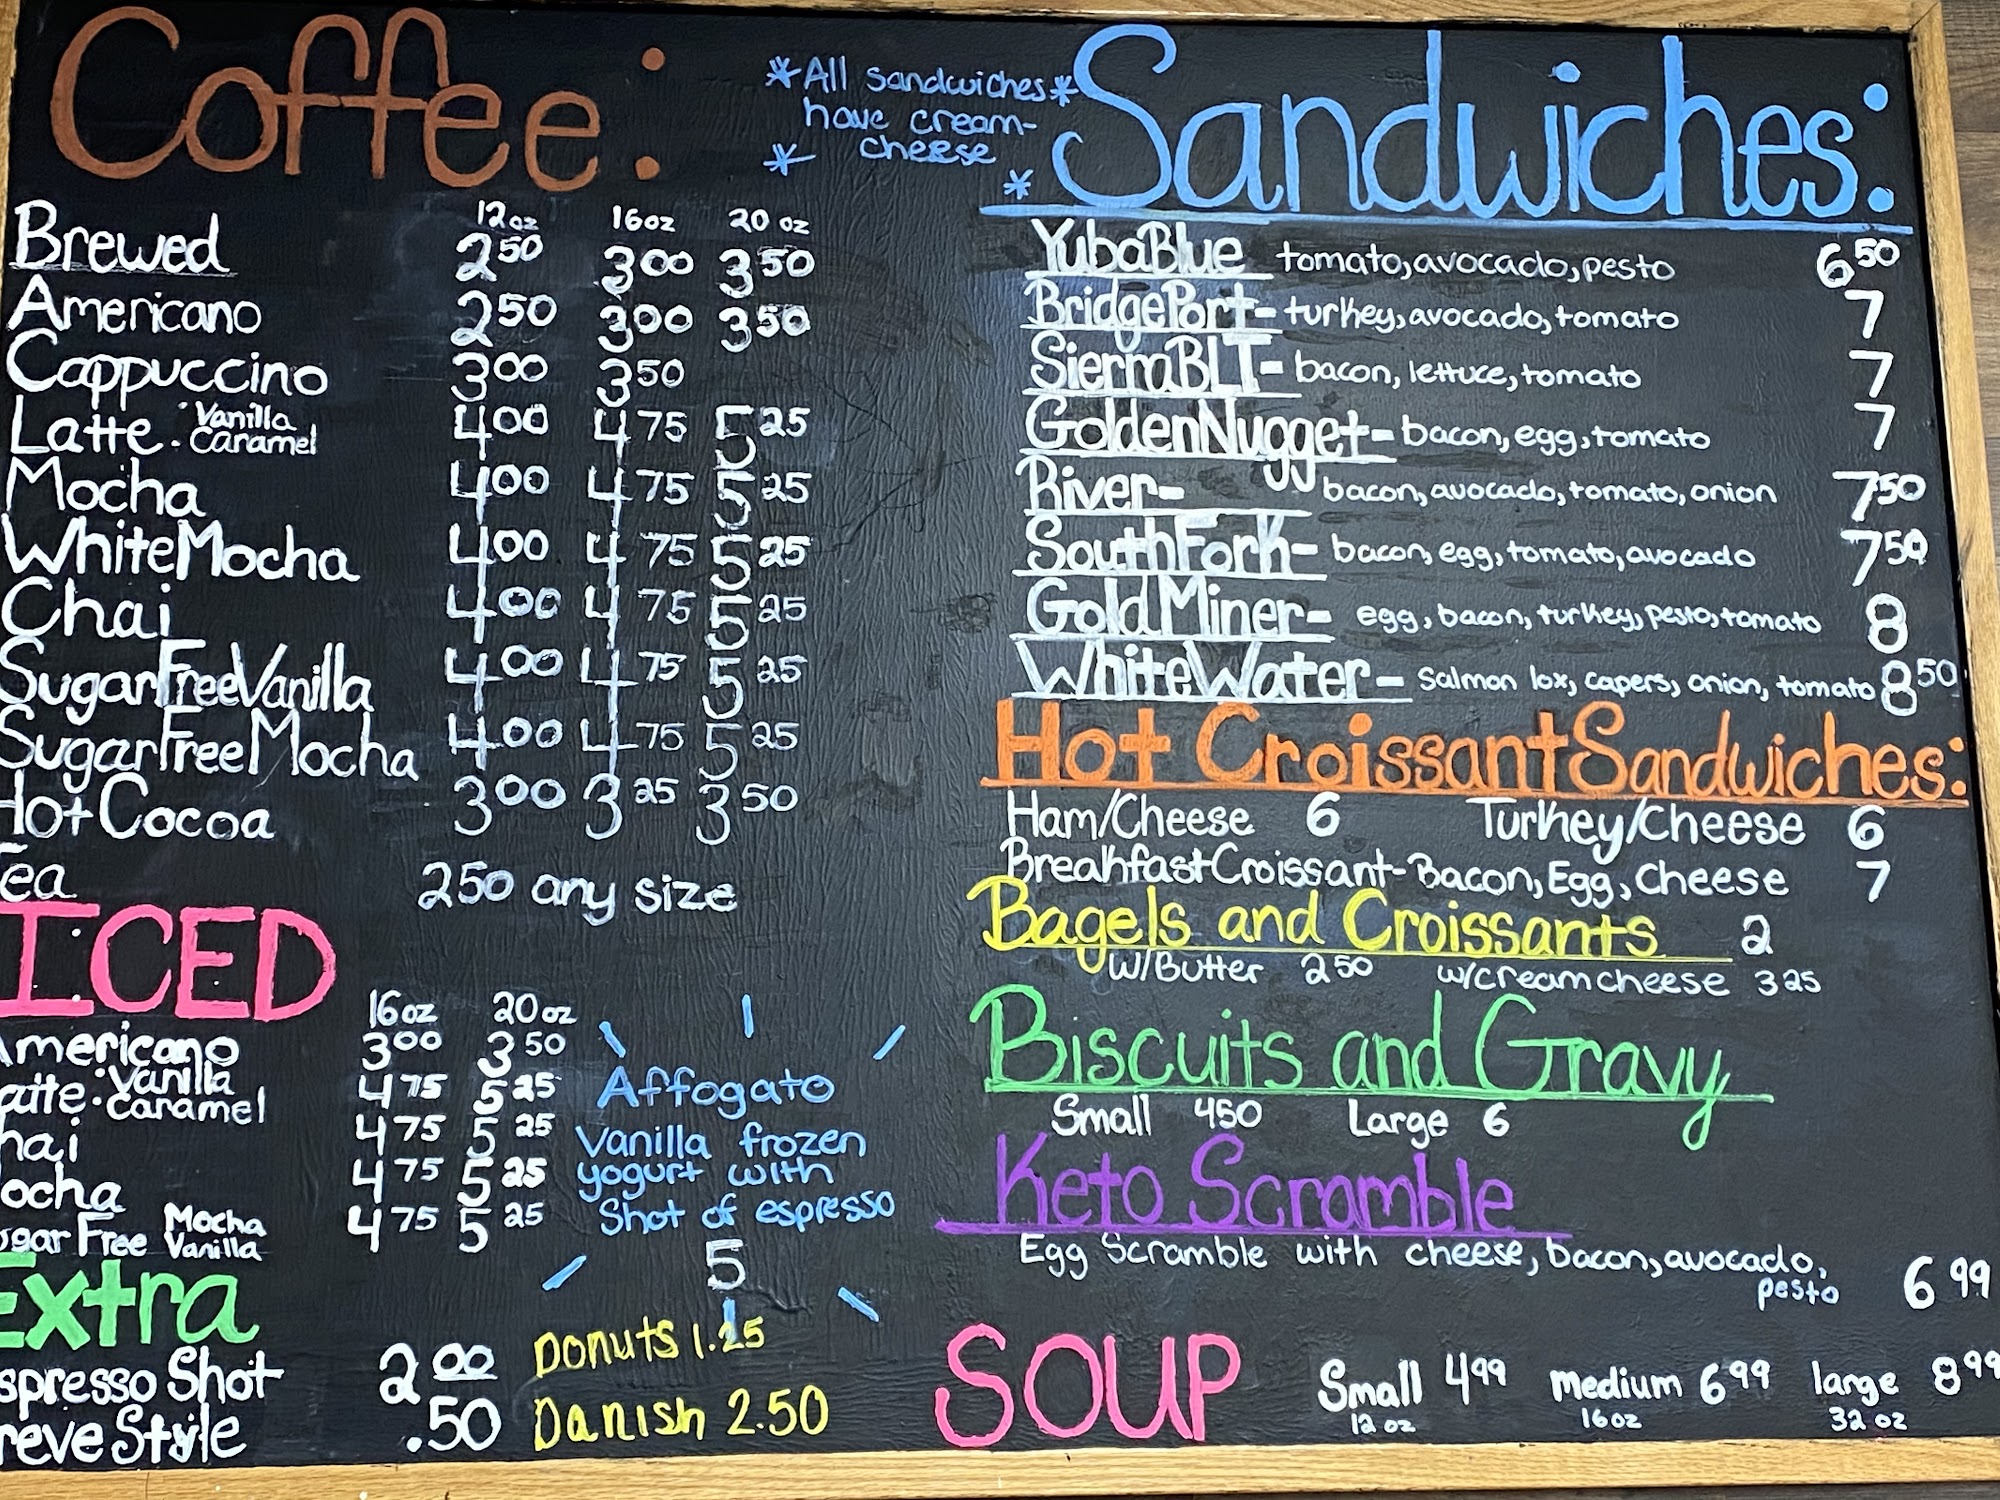 Coffee:
12oz 16oz 20 oz
Brewed 2.50 3.00 3.50
Americano 2.50 3.00 3.50
Cappuccino 3.00 3.50
Latte · Vanilla Caramel 4.00 4.75 5.25
Mocha 4.00 4.75 5.25
White Mocha 4.00 4.75 5.25
Chai 4.00 4.75 5.25
Sugar Free Vanilla 4.00 4.75 5.25
Sugar Free Mocha 4.00 4.75 5.25
Hot Cocoa 3.00 3.25 3.50
Tea 250 any size
ICED
16oz 20oz
Americano 3.00 3.50
atte · Vanilla Caramel 4.75 5.25
hai 4.75 5.25
ocha 4.75 5.25
ugar Free Mocha Vanilla 4.75 5.25
Extra
spresso Shot 2.00
reve Style .50
Affogato
Vanilla frozen
yogurt with
Shot of espresso
5
Donuts 1.25
Danish 2.50
*All sandwiches*
have cream-
* cheese *
Sandwiches:
YubaBlue tomato, avocado, pesto 6.50
BridgePort- turkey, avocado, tomato 7
Sierra BLT- bacon, lettuce, tomato 7
Golden Nugget- bacon, egg, tomato 7
River- bacon, avocado, tomato, onion 7.50
South Fork- bacon, egg, tomato, avocado 7.50
Gold Miner- egg, bacon, turkey, pesto, tomato 8
White Water- Salmon lox, capers, onion, tomato 8.50
Hot Croissant Sandwiches:
Ham/Cheese 6 Turkey/Cheese 6
Breakfast Croissant- Bacon, Egg, Cheese 7
Bagels and Croissants 2
w/Butter 2.50 w/creamcheese 3.25
Biscuits and Gravy
Small 450 Large 6
Keto Scramble
Egg Scramble with cheese, bacon, avocado,
pesto 6.99
SOUP Small 4.99 medium 6.99 large 8.99
12 oz 16oz 32 oz